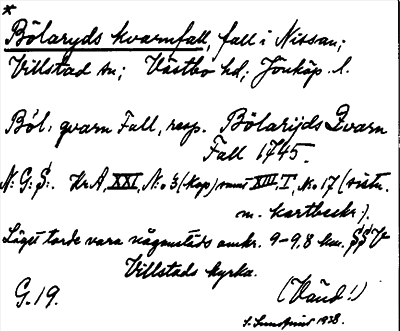 *
Bölaryds kvarnfall, fall i Nissan;
Villstad sn; Västbo hd; Jönköp. l.
Böl: qvarn Fall, resp. Bölarijds Qvarn
Fall 1745.
N: G: S:. Kr. A, XXI, N:o 3 (kop) samt XIII, I, No. 17 (
m. kartbeskr.).
Läget torde vara någonstäds omkr. 9-9,8 km. SSV
Villstads kyrka.
G. 19.
(Vänd!)
S. 1938.